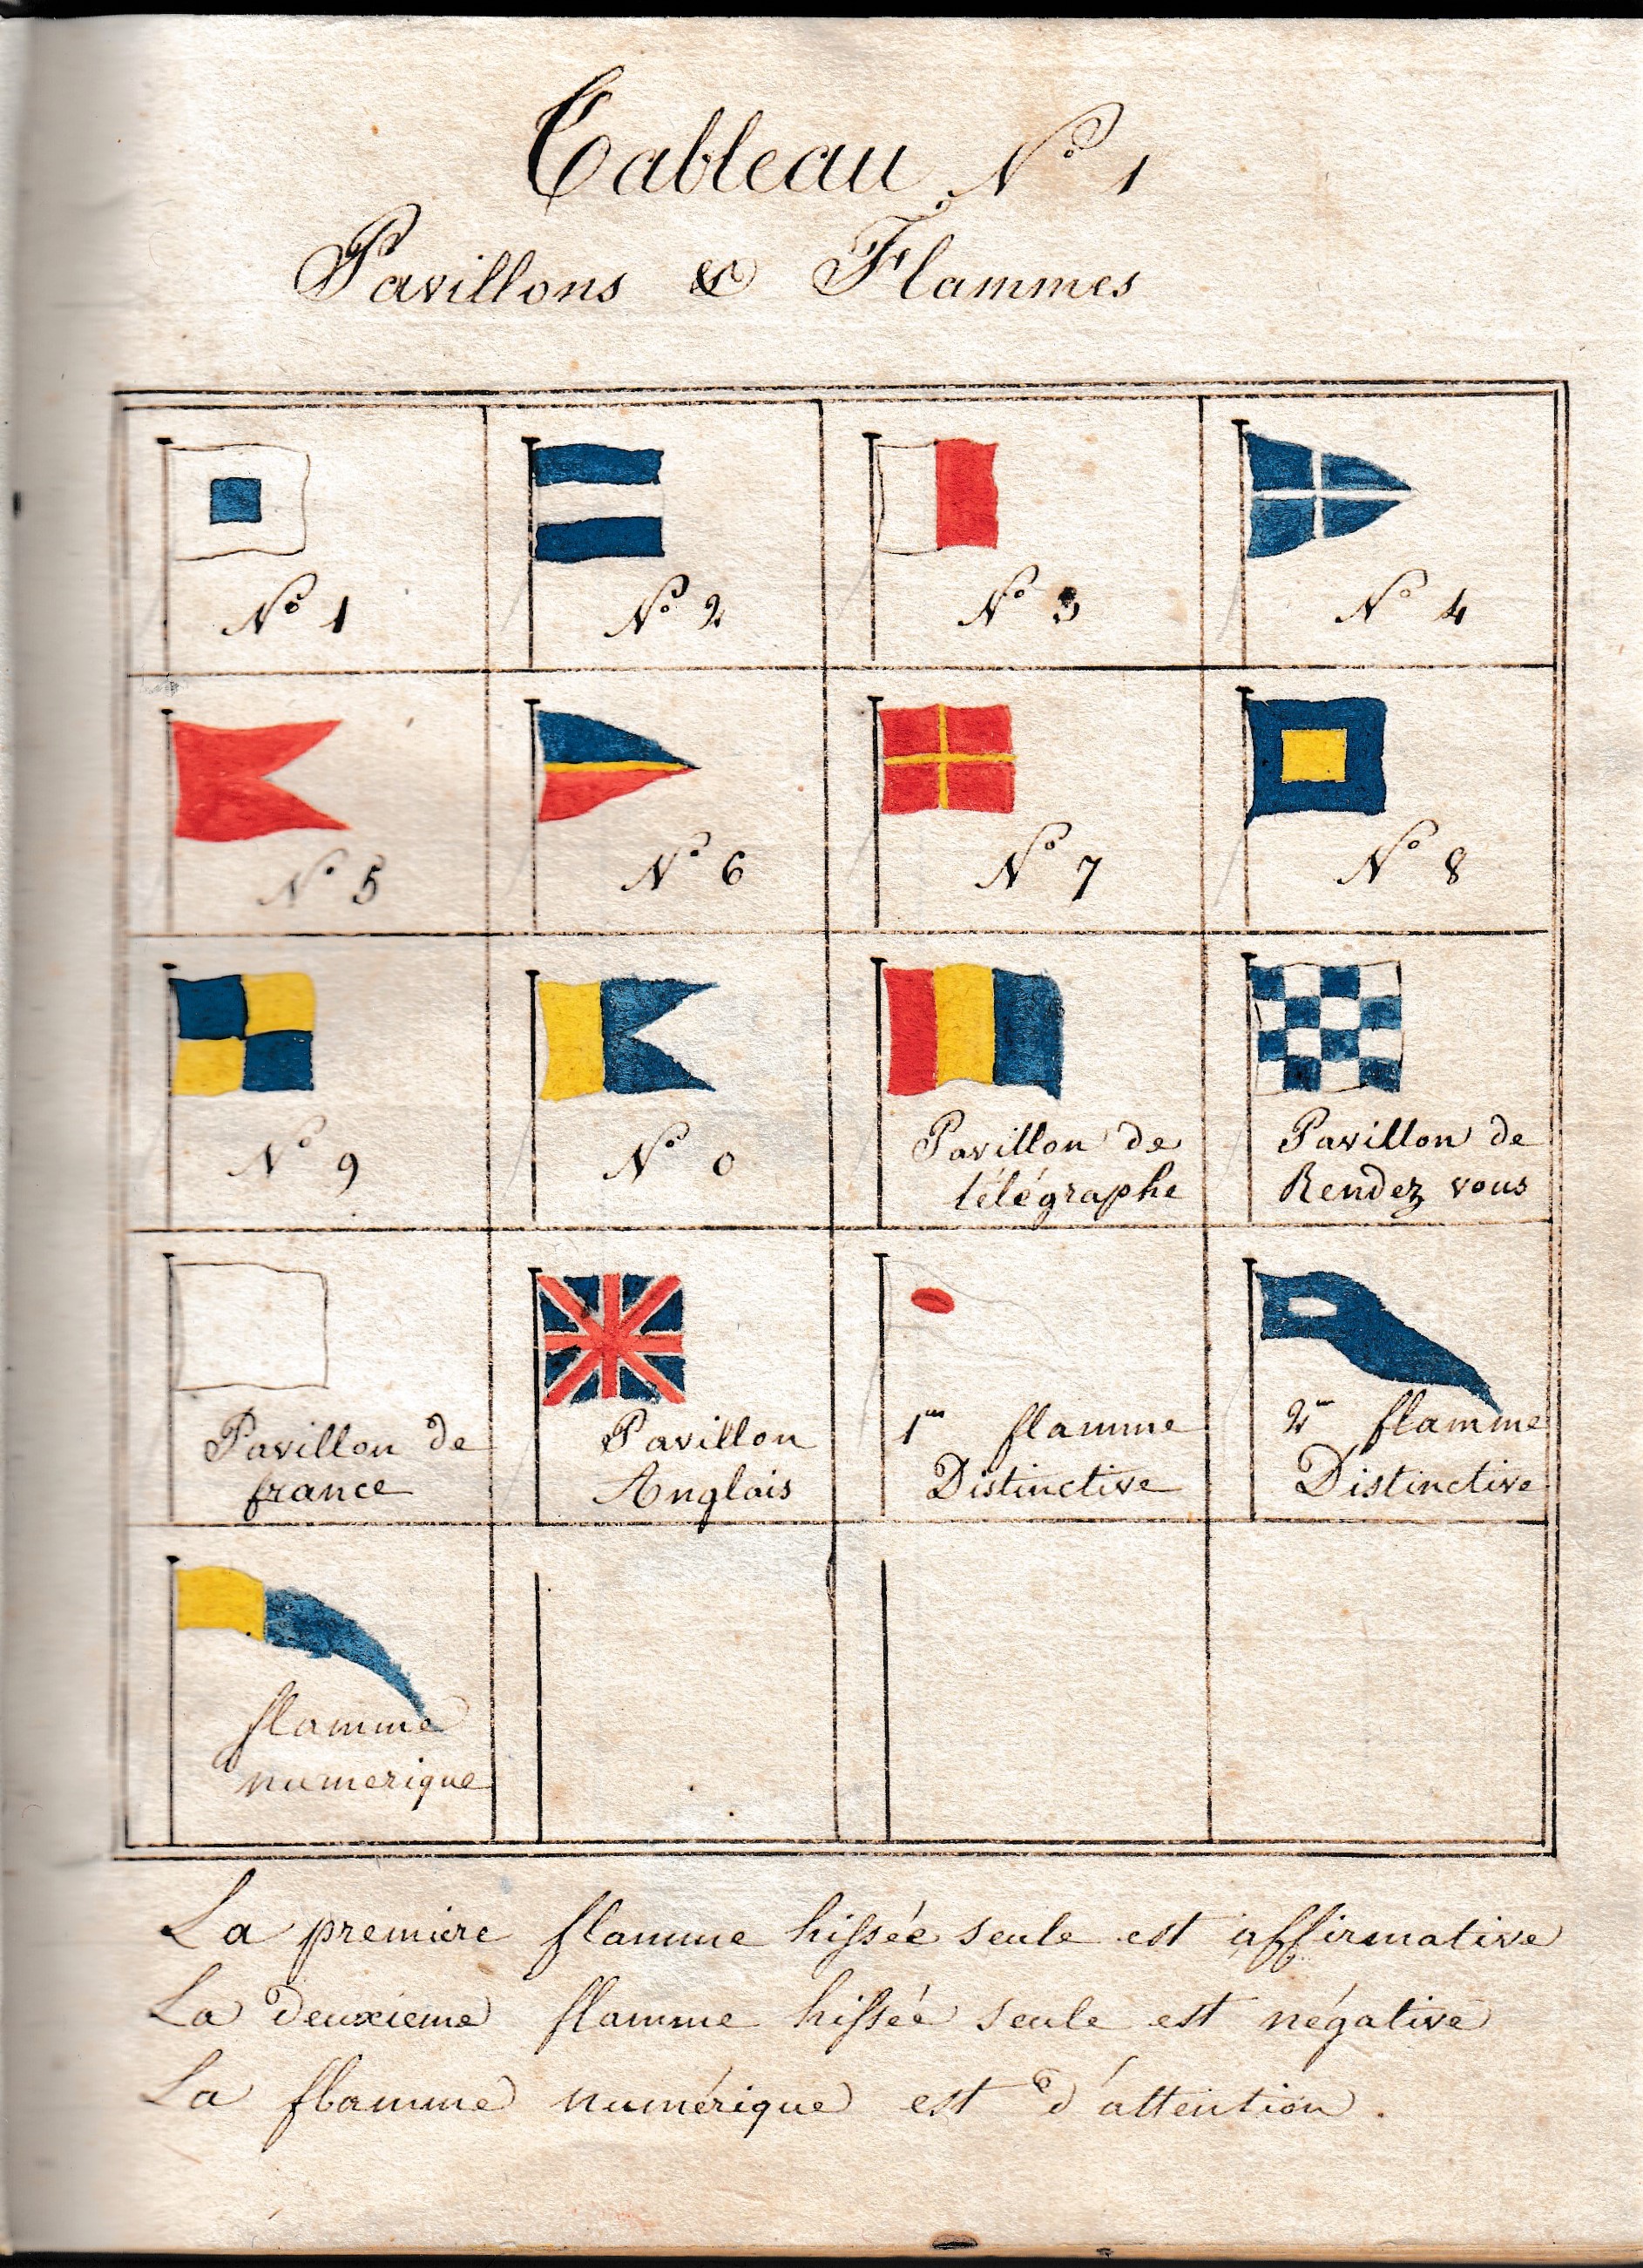 Tableau N° 1
Pavillons & Flammes
N° 1
N° 2
N° 3
N° 4
N° 5
N° 6
N° 7
N° 8
N° 9
N° 0
Pavillon de
télégraphe
Pavillon de
Rendez vous
Pavillon de
france
Pavillon
Anglais
1re flamme
Distinctive
2me flamme
Distinctive
flamme
numerique
La premiere flamme hissée seule est affirmative
La deuxieme flamme hissée seule est négative
La flamme numérique est d'attention.